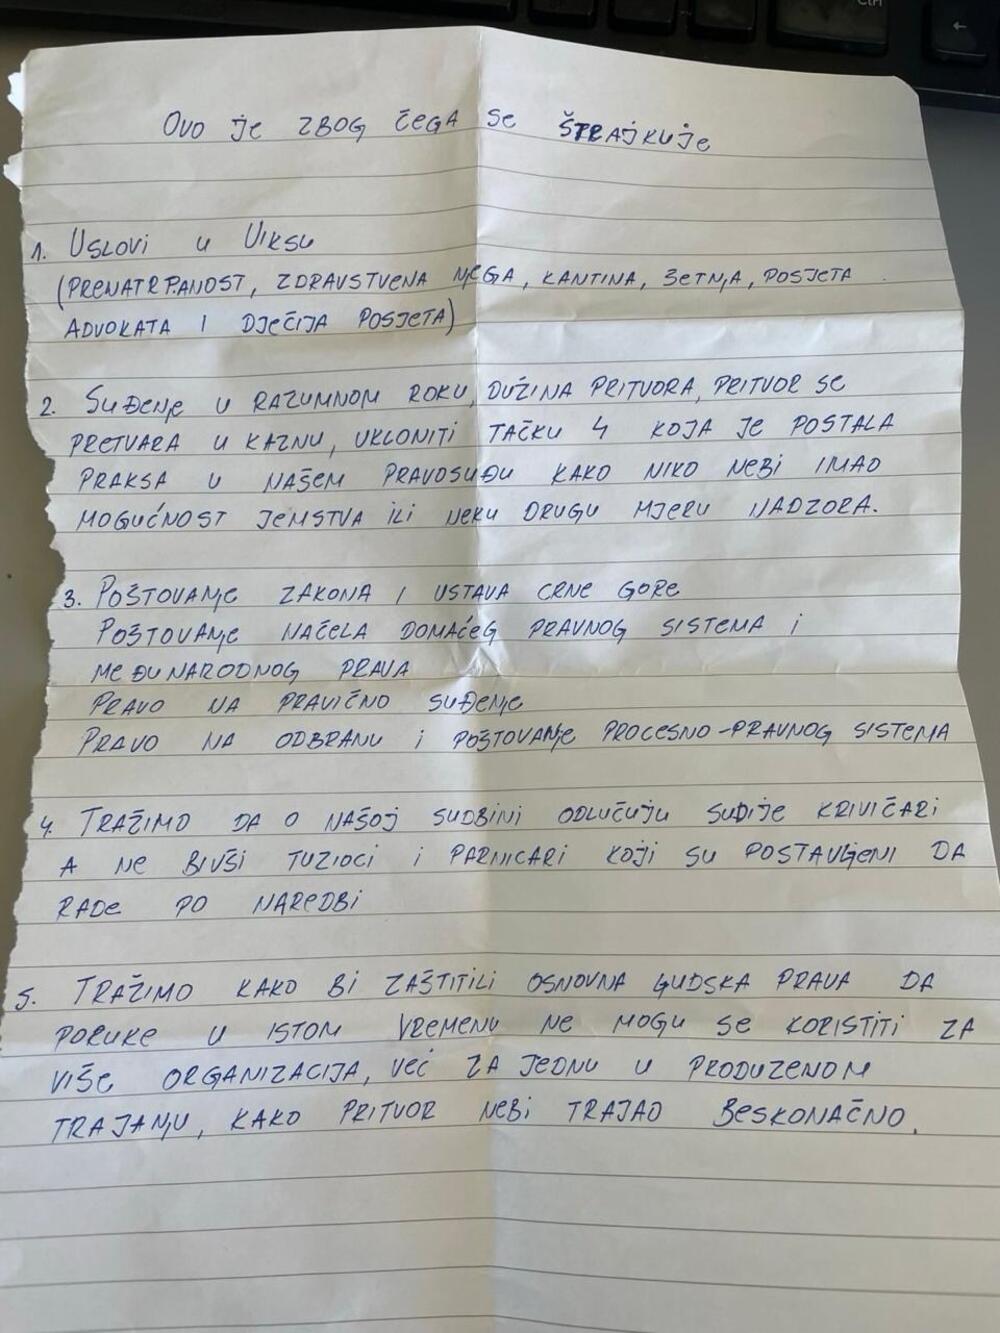 Ovo je zbog čega se štrajkuje
1. Uslovi u Uiksu
(prenatrpanost, zdravstvena njega, kantina, šetnja, posjeta
advokata i dječija posjeta)
2. Suđenje u razumnom roku, dužina pritvora, pritvor se
pretvara u kaznu, ukloniti tačku 4 koja je postala
praksa u našem pravosuđu kako niko nebi imao
mogućnost jemstva ili neku drugu mjeru nadzora.
3. Poštovanje zakona i ustava Crne Gore
Poštovanje načela domaćeg pravnog sistema i
međunarodnog prava
Pravo na pravično suđenje
Pravo na odbranu i poštovanje procesno-pravnog sistema
4. Tražimo da o našoj sudbini odlučuju sudije krivičari
a ne bivši tuzioci i parnicari koji su postavljeni da
rade po naredbi
5. Tražimo kako bi zaštitili osnovna ljudska prava da
poruke u istom vremenu ne mogu se koristiti za
više organizacija, već za jednu u produzenom
trajanju, kako pritvor nebi trajao beskonačno.
Ctrl
←